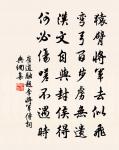 猿臂將軍去似飛
彎弓百步虜無遺
漢文自與封侯得
何必傷嗟不遇時
崔道融題李將軍傳詞
典細集